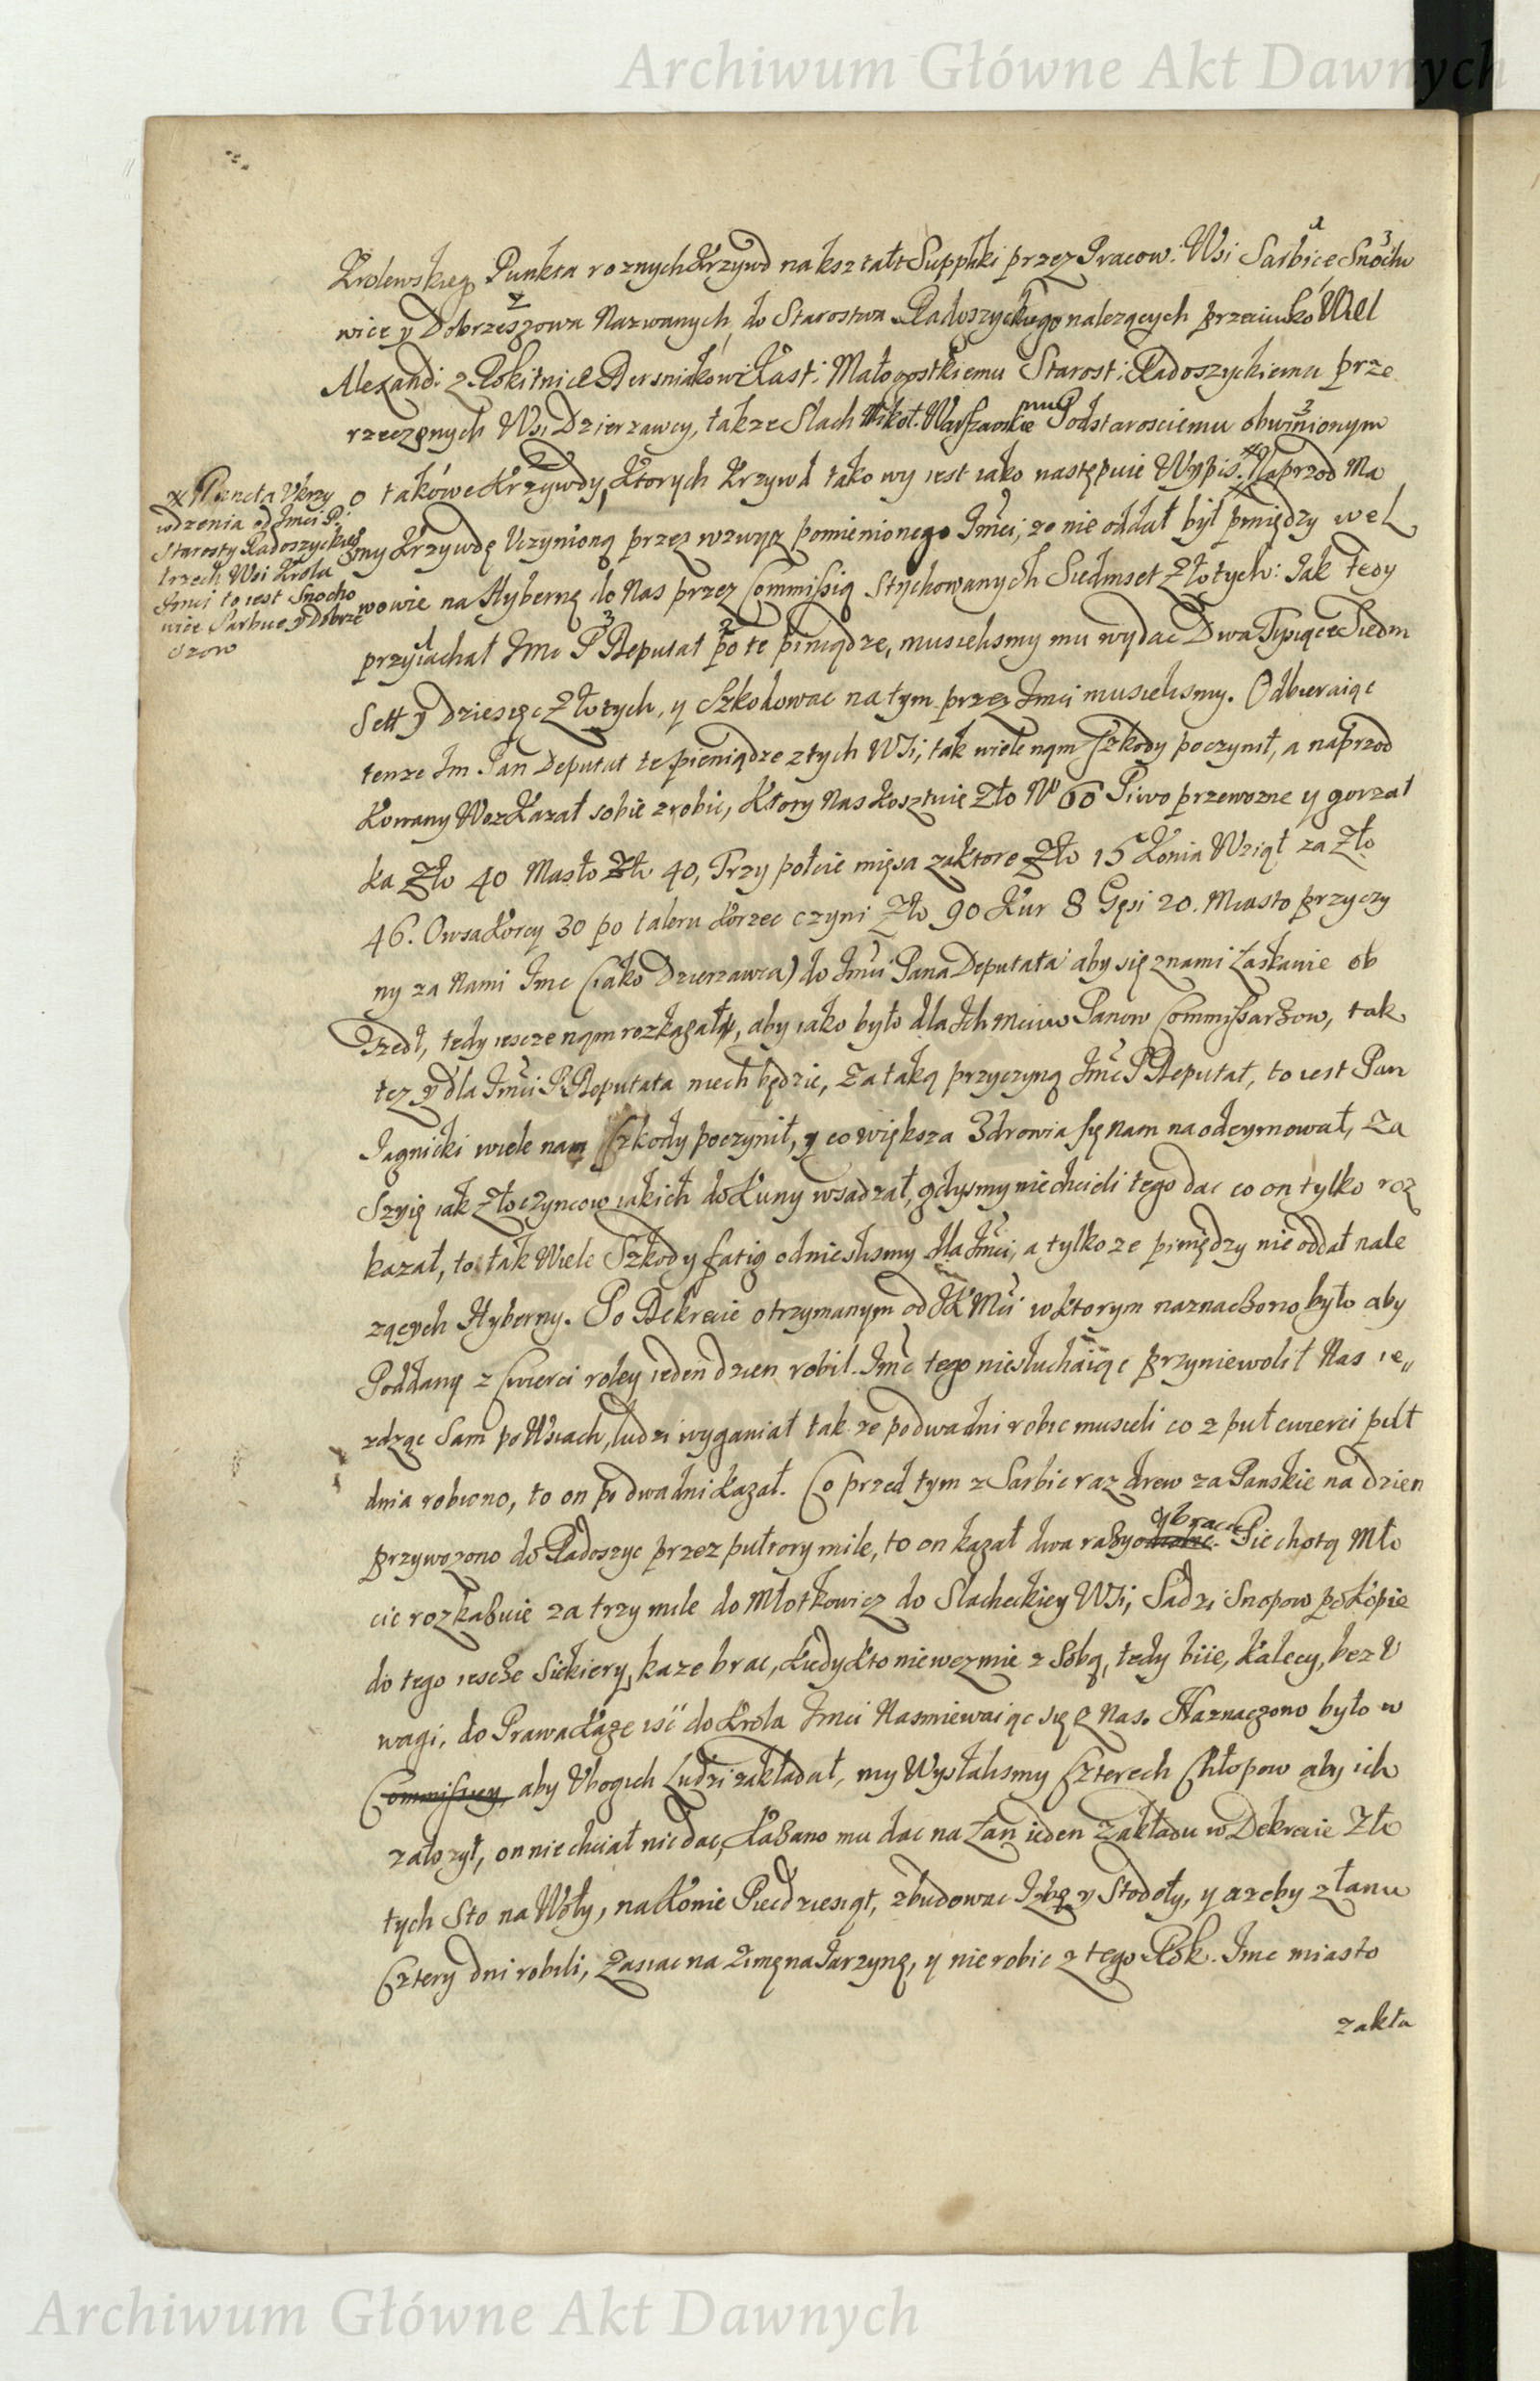 Archiwum Główne Akt Dawnych
Krolewskieg Punkta roznych Krzywd na kształt Suppliki przez Pracow: Wsi Sarbice Snocho
wice y Dobrzeszowa Nazwanych, do Starostwa Radoszyckiego nalezących przeciwko Wiel
Alexandr: z Rokitnice Dersniakowi Kast: Małogostkiemu Starost: Radoszyckiemu prze
rzeczonych Wsi Dzierzawcy, takze Slach Mikoł. Warszawskiemu Podstarosciemu obwinionym
o takowe Krzywdy, Ktorych Krzywd takowy iest iako następuie Wypis. Naprzod Ma
my Krzywdę Uczynioną przez wzwyz pomienionego Jmci, ze nie oddał był pieniędzy wel
wowie na Hybernę do Nas przez Commissią Stychowanych Siedmset Złotych: Jak tedy
przyiachał Jmc P Deputat po te pieniądze, musielismy mu wydac Dwa Tysiące Siedm
Sett y Dziesięc Złotych, y Szkodowac na tym przez Jmci musielismy. Odbieraiąc
tenze Jm Pan Deputat te pieniądze z tych WSi, tak wiele nąm szkody poczynił, a naprzod
Kowany Woz Kazał sobie zrobic, Ktory Nas kosztuie Zło No 60 Piwo przewozne y gorzał
ka Zło 40 Masło Zło 40, Trzy połcie mięsa za ktore Zło 15 Konia Wziął za Zło
46. Owsa Korcy 30 po taleru Korzec czyni Zło 90 Kur 8 Gęsi 20. Miasto przyczy
ny za Nami Jmc (iako Dzierzawca) do Jmci Pana Deputata aby się znami łaskawie ob
szedł, tedy iescze nąm rozkazał, aby iako było dla Ich Mciow Panow Commissarzow, tak
tez y dla Jmci P. Deputata niech będzie, Za taką przyczyną Jmc P Deputat, to iest Pan
Jagnicki wiele nam Szkody poczynił, y co większa Zdrowia się Nam na odeymował, Za
Szyię iak Złoczyncow iakich do Kuny wsadzał, gdysmy niechcieli tego dac co on tylko roz
kazał, to tak Wiele Szkody fatig odnieslismy dla Jmci, a tylko ze pieniędzy nie oddał nale
zących Hyberny. Po Dekrecie otrzymanym od JK Mci w ktorym naznaczono było aby
Poddany z Cwierci roley ieden dzien robił. Jmc tego niesłuchaiąc przyniewolił Nas ie„
zdząc Sam po Wsiach, ludzi wyganiał tak ze po dwa dni robic musieli co z puł cwierci puł
dnia robiono, to on po dwa dni kazał. Co przed tym z Sarbic raz drew za Panskie na dzien
przywozono do Radoszyc przez pułtory mile, to on kazał dwa razy obracac. Piechotą Mło
cic rozkazuie za trzy mile do Młotkowicz do Slacheckiey WSi, Sadzi Snopow po kopie
do tego iescze Siekiery kaze brac, kiedy kto niewezmie z Sobą, tedy biie, kalecy, bez u
wagi, do Prawa kaze isc do Krola Jmci Nasmiewaiąc się z Nas. Naznaczono było w
Commissiey, aby Ubogich Ludzi zakładał, my Wysłalismy Czterech Chłopow aby ich
załozył, on nie chciał nic dac, Kazano mu dac na łan ieden Zakładu w Dekrecie Zło
tych Sto na Woły, na Konie Piecdziesiąt, zbudowac Izbę y Stodoły, y azeby z łanu
Cztery dni robili, Zasiac na Zimę na Jarzynę, y nie robic z tego Rok. Jmc miasto
zakła
Puncta Ukrzy
wdzenia od Jmci P.
Starosty Radoszyckieg
trzech Wsi Krola
Jmci to iest Snocho
wice Sarbice y Dobrze
szow
Archiwum Główne Akt Dawnych